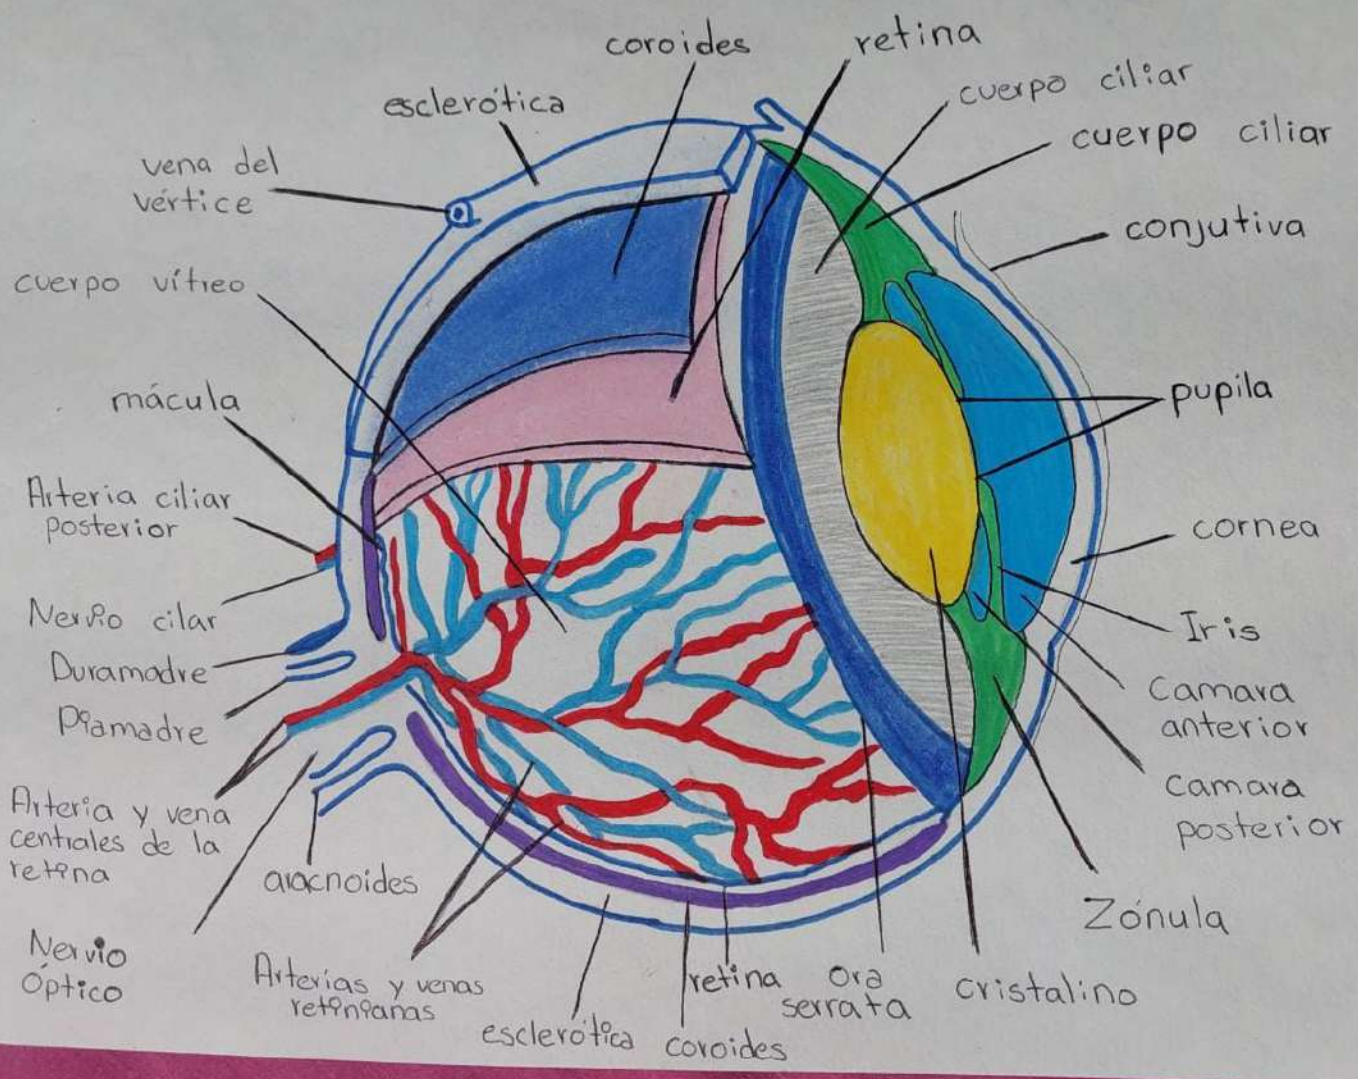 coroides
retina
esclerótica
cuerpo ciliar
cuerpo ciliar
vena del
vértice
conjutiva
cuerpo vítreo
mácula
pupila
Arteria ciliar
posterior
cornea
Nervio cilar
Iris
Duramadre
Piamadre
Camara
anterior
Camara
posterior
Arteria y vena
centrales de la
retina
aracnoides
Zónula
Nervio
Óptico
Arterias y venas
retinianas
retina
Ora
serrata
cristalino
esclerótica
coroides